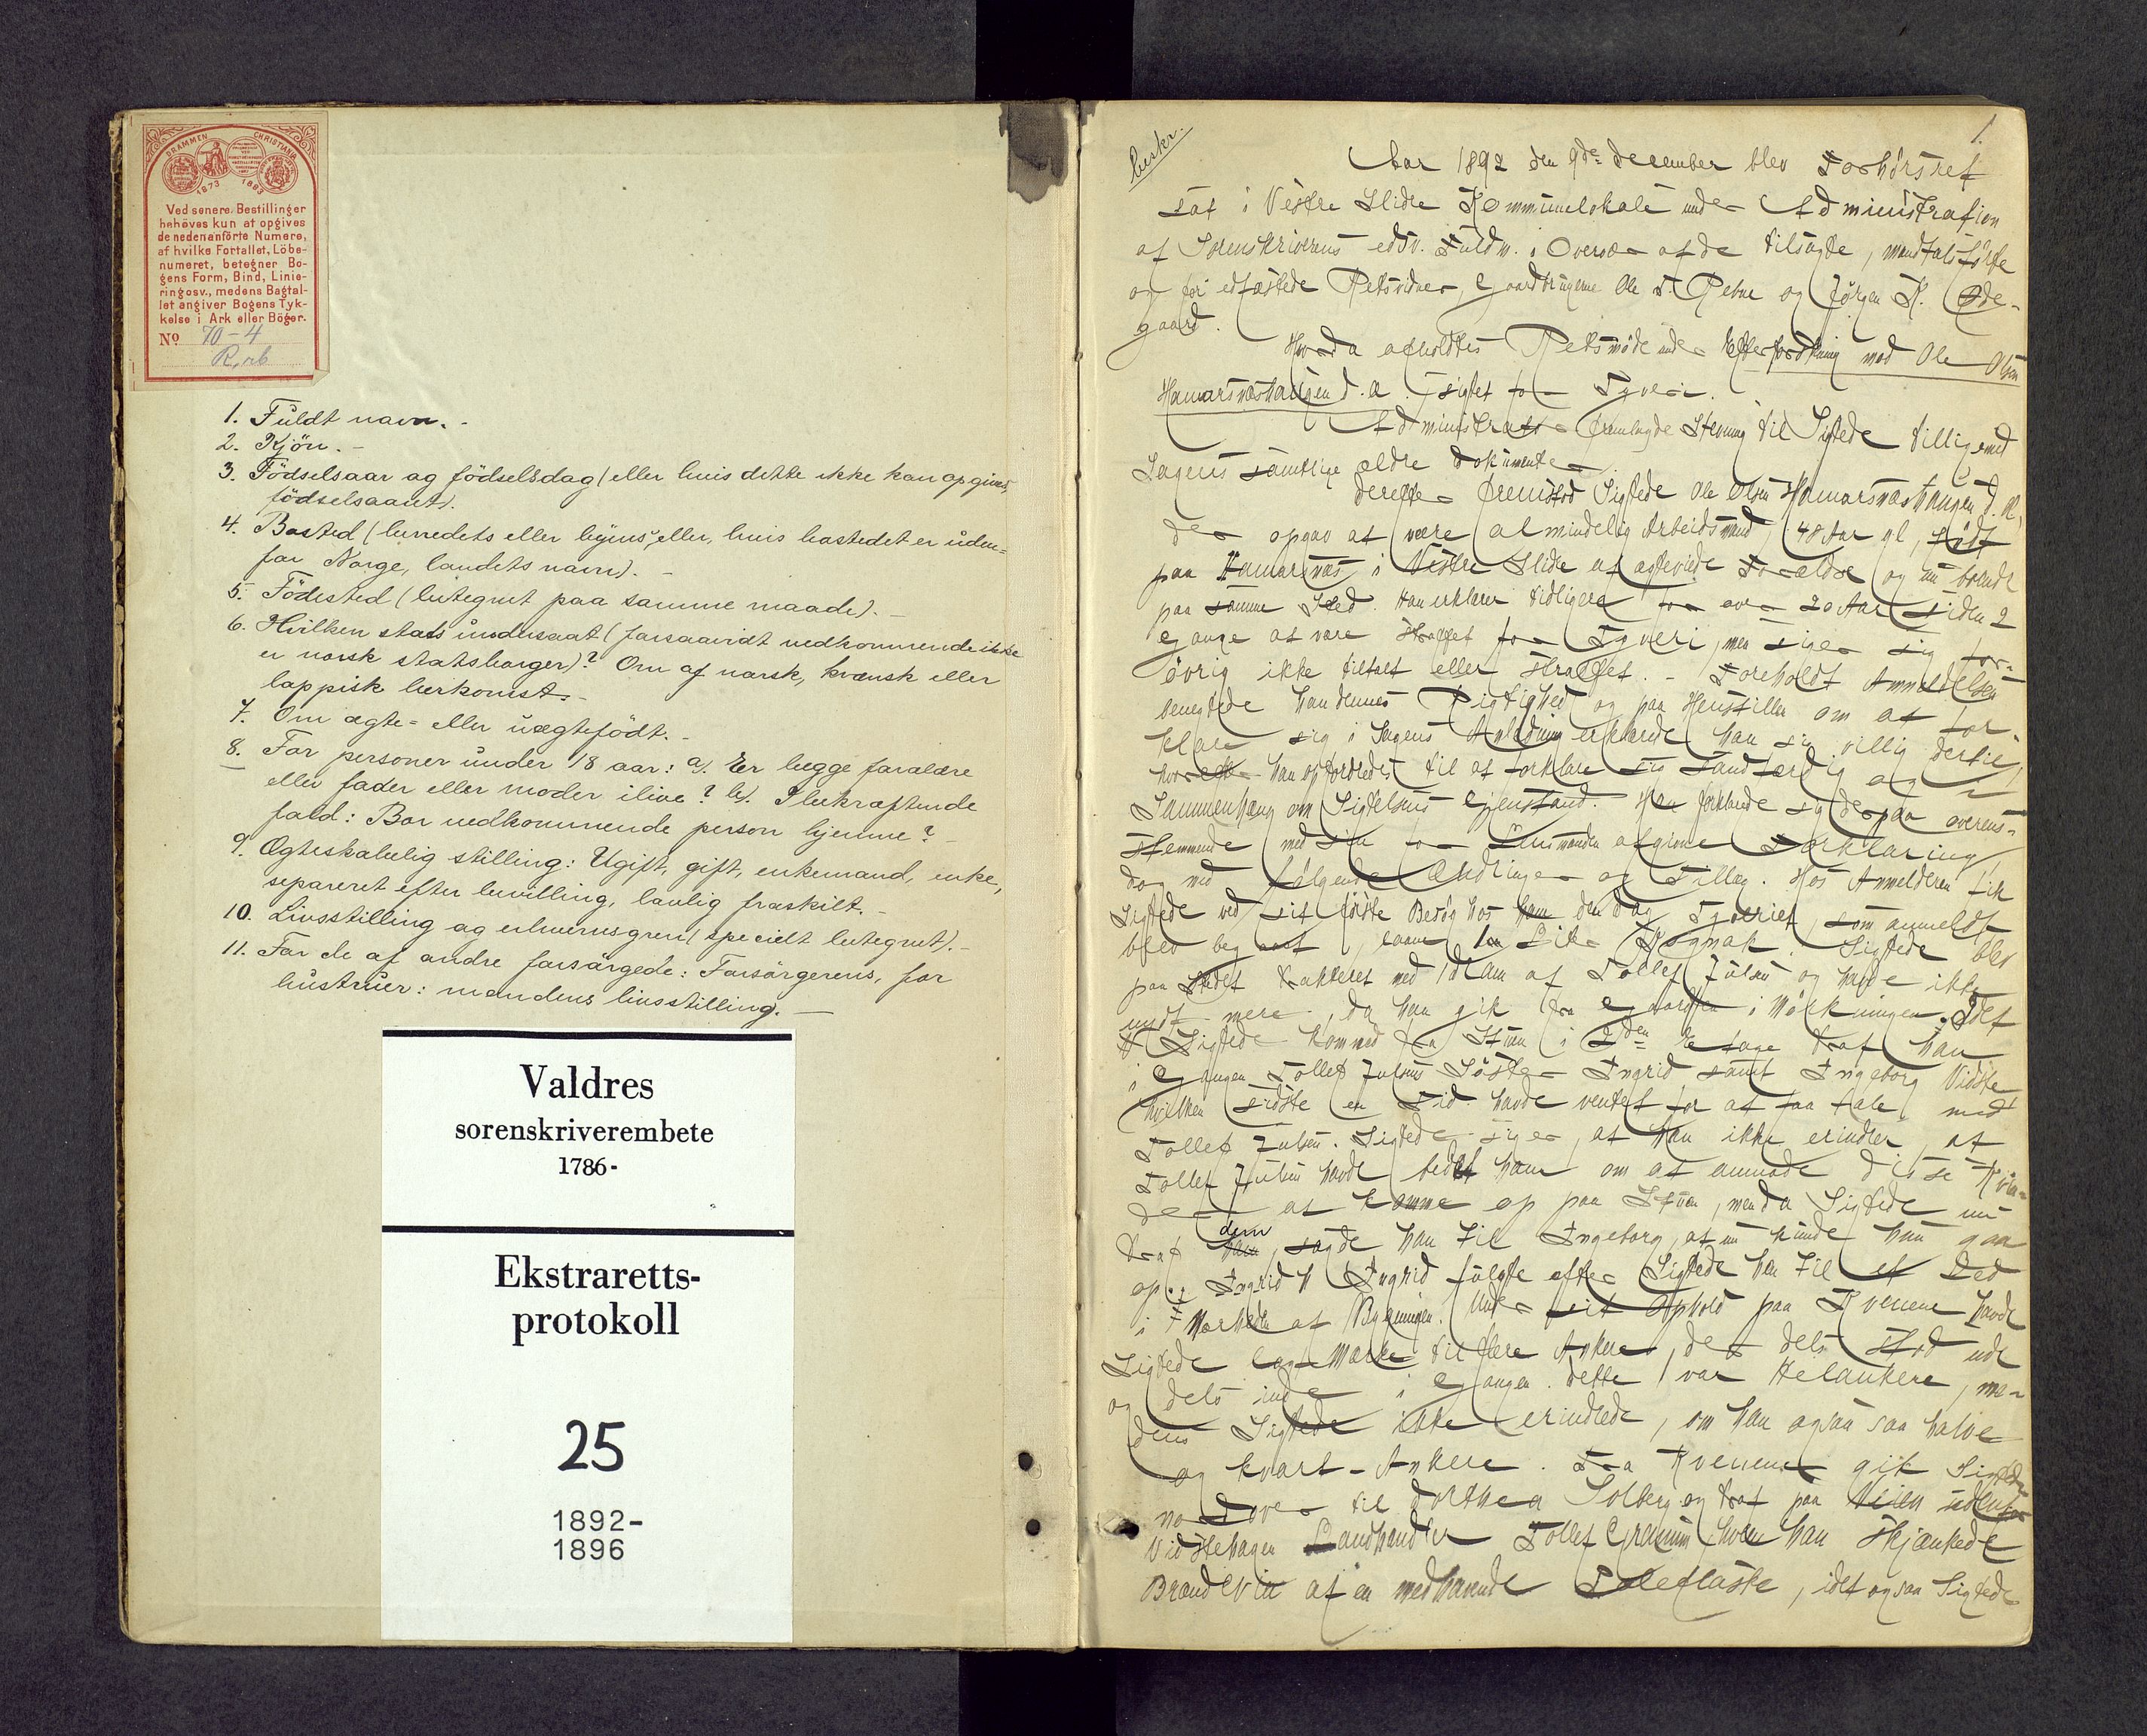 DRAMMEN CHRISTIANIA
1873 1883
Ved senere Bestillinger
behöves kun at opgives
de nedenanförte Numere,
af hvilke Fortallet, Löbe-
numeret, betegner Bo-
gens Form, Bind, Linie-
ring osv., medens Bagtal-
let angiver Bogens Tyk-
kelse i Ark eller Böger.
No 70-4
R, rb
1. Fuldt navn. -
2. Kjön. -
3. Födselsaar og födselsdag (eller hvis dette ikke kan opgives,
födselsaaret).
4. Bosted (herredets eller byens, eller, hvis bostedet er uden-
for Norge, landets navn). -
5. Födested (betegnet paa samme maade). -
6. Hvilken stats undersaat (forsaavidt vedkommende ikke
er norsk statsborger)? Om af norsk, kvænsk eller
lappisk herkomst. -
7. Om ægte- eller uægtefödt. -
8. For personer under 18 aar: a). Er begge forældre
eller fader eller moder ilive? b). I bekræftende
fald: Bor vedkommende person hjemme? -
9. Ægteskabelig stilling: Ugift, gift, enkemand, enke,
separeret efter bevilling, lovlig fraskilt. -
10. Livsstilling og erhvervsgren (specielt betegnet). -
11. For de af andre forsörgede: Forsörgerens, for
hustruer: mandens livsstilling. -
Valdres
sorenskriverembete
1786-
Ekstraretts-
protokoll
25
1892-
1896
1.
Beskr.
Aar 1892 den 9de December blev Forhörsret
sat i Vestre Slidre Kommunelokale under Administration
af Sorenskriverens edsv. Fuldm. i Overvær af de tilsagte, mandtalsförte
og för edfæstede Retsvidner, Gaardbrugerne Ole T. Rebne og Jörgen K. Öde-
gaard.
Hvorda afholdtes Retsmöde under Efterforskning mod Ole Olsen
Hamarsnæshaugen d. a. sigtet for Tyveri.
Administrator fremlagde Stevning til Sigtede tilligemed
Sagens samtlige ældre Dokumenter.
Derefter fremstod Sigtede Ole Olsen Hamarsnæshaugen d. a.,
der opgav at være almindelig Arbeidsmand, 48 Aar gl, född
paa Hamarsnæs i Vestre Slidre af ægteviede Forældre og nu boende
paa samme Sted. Han erklærer tidligere for over 20 Aar siden 2
Gange at være straffet for Tyveri, men siger sig for-
övrig ikke tiltalt eller straffet. - Foreholdt Anmeldelsen
benegtede han dennes Rigtighed og paa Henstillen om at for-
klare sig i Sagens Anledning erklærede han sig villig dertil,
hvorefter han opfordredes til at forklare sig sandfærdig og i
Sammenhæng om Sigtelsens Gjenstand. Han forklarede sig derpaa overens-
stemmende med sin for Lensmanden afgivne Forklaring,
dog med fölgende Ændringer og Tillæg. Hos Anmelderen fik
Sigtede ved sit förste Besög hos ham den Dag, Tyveriet, som anmeldt
blev begaaet, laane 1 Liter Kognak. Sigtede blev
paa Stedet trakteret med 1 Dram af Tollef Julsen og havde ikke
nydt mere, da han gik fra Gaarden i Mörkningen. Idet
Sigtede kom ned fra Stuen i 2den Etage traf han
i Gangen Tollef Julsens Söster Ingrid samt Ingeborg Vidste
hvilken sidste en Tid havde ventet for at faa tale med
Tollef Julsen. Sigtede siger, at han ikke erindrer, at
Tollef Julsen havde bedet ham om at anmode disse Kvin-
der at komme op paa Stuen, men da Sigtede nu
traf dem, sagde han til Ingeborg, at nu kunde hun gaa
op. Ingrid fulgte efter Sigtede hen til et Sted
i Nærheden af Bygningen. Under sit Ophold paa Kvenene havde
Sigtede lagt Mærke til flere Ankere, der dels stod ude
og dels inde i Gangen. Dette var Helankere, me-
dens Sigtede ikke erindrede, om han ogsaa saa halve
og kvart-Ankere. Fra Kvenene gik Sigtede
nordover til Dorthea Solberg og traf paa Veien udenfor
Vidstehagen Landhandler Tollef Granum hvem han skjænkede
Brændevin af en medhavende Pæleflaske, idet ogsaa Sigtede